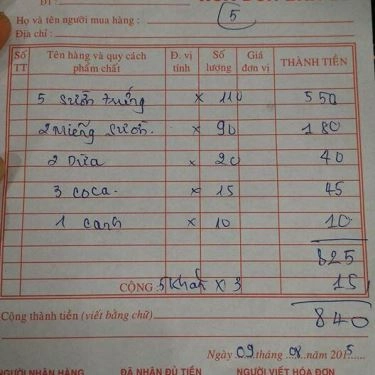 ĐT :
Họ và tên người mua hàng :
5
Địa chỉ :
Số TT Tên hàng và quy cách phẩm chất Đ. vị tính Số lượng Giá đơn vị THÀNH TIỀN
5 sườn trứng x 110 550
2 miếng sườn. x 90 180
2 Dừa x 20 40
3 coca. x 15 45
1 canh x 10 10
825
CỘNG : 5 khăn x 3 15
Cộng thành tiền (viết bằng chữ) 840
Ngày 09 tháng 08 năm 2015
NGƯỜI NHẬN HÀNG ĐÃ NHẬN ĐỦ TIỀN NGƯỜI VIẾT HÓA ĐƠN